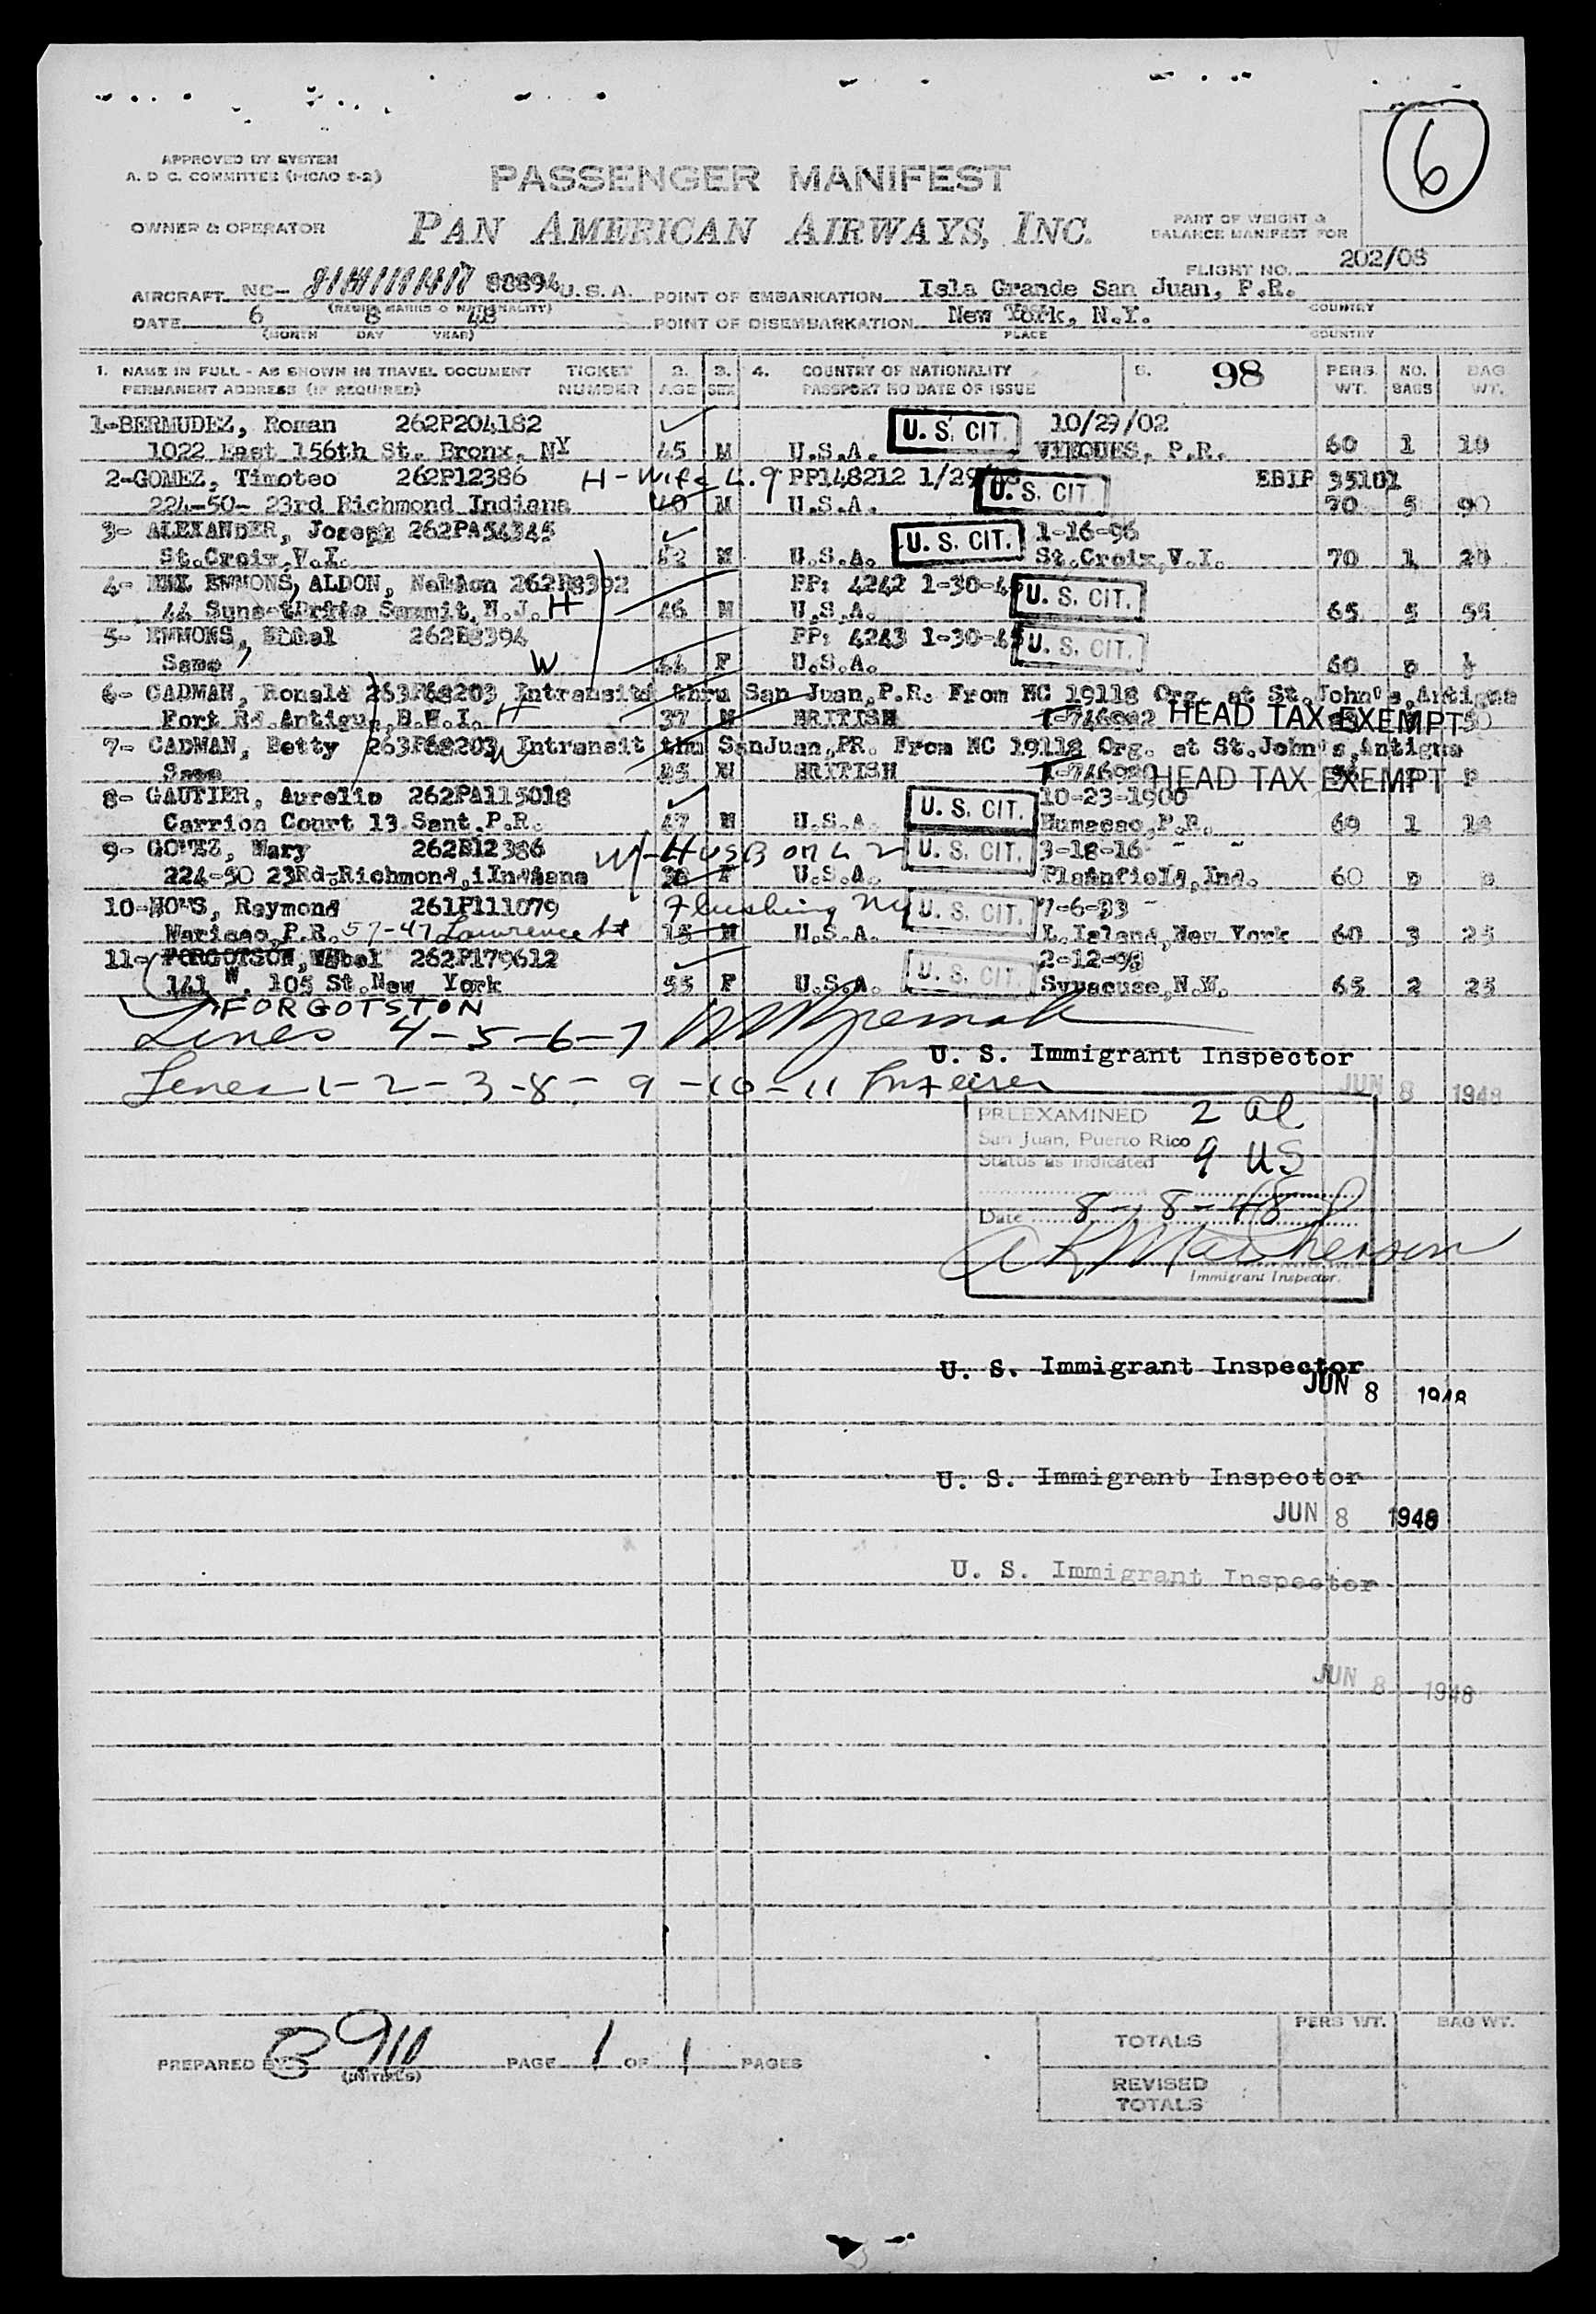 6
APPROVED BY SYSTEM
A. D C. COMMITTEE (MCAO S-2)
PASSENGER MANIFEST
OWNER & OPERATOR
PAN AMERICAN AIRWAYS, INC.
PART OF WEIGHT &
BALANCE MANIFEST FOR
FLIGHT NO. 202/08
AIRCRAFT NC- 88894 U.S.A.
POINT OF EMBARKATION Isla Grande San Juan, P.R.
(REGIS MARKS & NATIONALITY)
COUNTRY
DATE 6 8 48
POINT OF DISEMBARKATION New York, N.Y.
(MONTH DAY YEAR)
PLACE COUNTRY
1. NAME IN FULL - AS SHOWN IN TRAVEL DOCUMENT TICKET 2. 3. 4. COUNTRY OF NATIONALITY 5. 98 PERS. NO. BAG
PERMANENT ADDRESS (IF REQUIRED) NUMBER AGE SEX PASSPORT NO DATE OF ISSUE WT. BAGS WT.
1-BERMUDEZ, Roman 262P204182 U. S. CIT. 10/29/02
1022 East 156th St. Bronx, NY 45 M U.S.A. VIEQUES, P.R. 60 1 10
2-GOMEZ, Timoteo 262P12386 H-Wife L.9 PP148212 EBIP 35101
224-50- 23rd Richmond Indiana 40 M U.S.A. U. S. CIT. 70 5 90
3- ALEXANDER, Joseph 262PA54345 1-16-96
St.Croix,V.I. 52 M U.S.A. U. S. CIT. St.Croix,V.I. 70 1 20
4- EMMONS, ALDON, Nelson 262P8392 PP: 4242 1-30-45
44 Sunset Drive Summit, N.J. H 46 M U.S.A. U. S. CIT. 65 5 55
5- EMMONS, Ethel 262P8394 PP: 4243 1-30-45
Same W 44 F U.S.A. U. S. CIT. 60 p
6- CADMAN, Ronald 263P68203 Intransitd thru San Juan,P.R. From NC 19118 Org. at St.John's,Antigua
Fort Rd.Antigua,B.W.I. H 37 M BRITISH HEAD TAX EXEMPT 50
7- CADMAN, Betty 263P68203 W Intransit thu SanJuan,PR. From NC 19118 Org. at St.John's,Antigua
Same BRITISH HEAD TAX EXEMPT p
8- GAUTIER, Aurelio 262PA115018 10-23-1900
Carrion Court 13 Sant.P.R. 47 M U.S.A. U. S. CIT. Humacao,P.R. 69 1 18
9- GOMEZ, Mary 262P12386 W-HUSB on L 2 U. S. CIT. 3-18-16
224-50 23Rd.Richmond,iIndiana F U.S.A. Plainfield,Ind. 60 p p
10- Raymond 261P111079 Flushing NY U. S. CIT. 7-6-33
Maricao,P.R. 57-47 Lawrence St 15 M U.S.A. L.Island,New York 60 3 25
11- FORGOTSON, Mabel 262P179612 2-12-93
141 W. 105 St.New York 55 F U.S.A. U. S. CIT. Syracuse,N.Y. 65 2 25
FORGOTSTON
Lines 4-5-6-7
U. S. Immigrant Inspector
Lines 1-2-3-8-9-10-11
JUN 8 1948
PREEXAMINED 2 al
San Juan, Puerto Rico
Status as indicated 9 US
Date 8-8-48
Immigrant Inspector.
U. S. Immigrant Inspector
JUN 8 1948
U. S. Immigrant Inspector
JUN 8 1948
U. S. Immigrant Inspector
JUN 8 1948
PERS WT. BAG WT.
TOTALS
PREPARED BY PAGE 1 OF 1 PAGES
(INITIALS)
REVISED
TOTALS